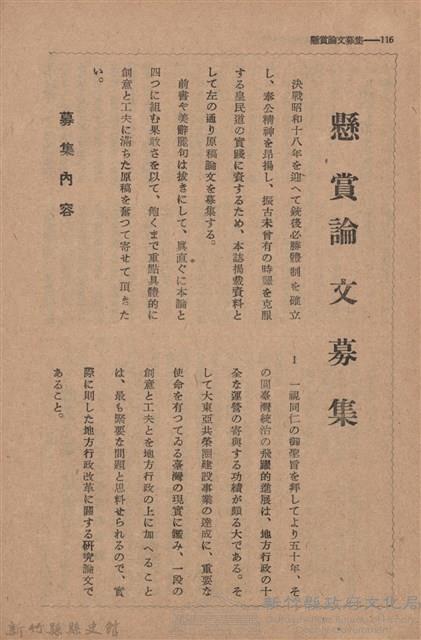 懸賞論文募集——116
懸賞論文募集
決戰昭和十八年を迎へて銃後必勝體制を確立
し、奉公精神を昂揚し、振古未曾有の時艱を克服
する皇民道の實踐に資するため、本誌揭載資料と
して左の通り原稿論文を募集する。
前書や美辭麗句は拔きにして、眞直ぐに本論と
四つに組む果敢さを以て、飽くまで重點具體的に
創意と工夫に滿ちた原稿を奮つて寄せて頂きた
い。
募集內容
1 一視同仁の御聖旨を拜してより五十年、そ
の間臺灣統治の飛躍的進展は、地方行政の十
全な運營の寄與する功績が頗る大である。そ
して大東亞共榮圈建設事業の達成に、重要な
使命を有つてゐる臺灣の現實に鑑み、一段の
創意と工夫とを地方行政の上に加へること
は、最も緊要な問題と思料せられるので、實
際に則した地方行政改革に關する硏究論文で
あること。
新竹縣政府文化局
新竹縣縣史館